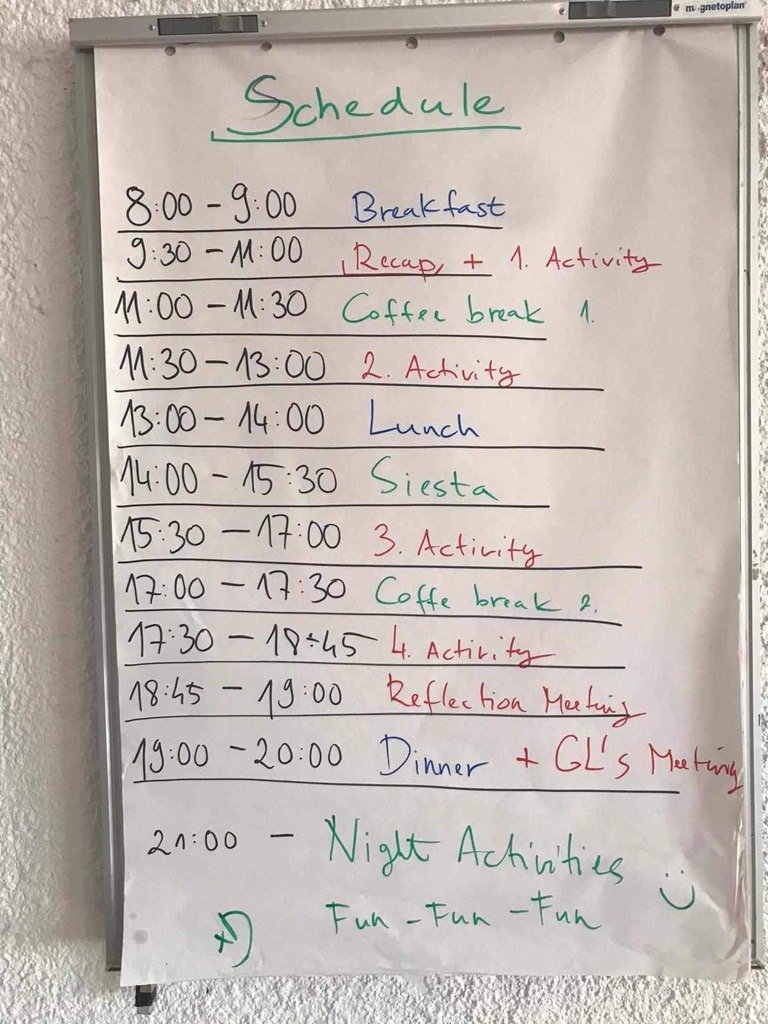 magnetoplan
Schedule
8:00 - 9:00 Breakfast
9:30 - 11:00 Recap + 1. Activity
11:00 - 11:30 Coffee break 1.
11:30 - 13:00 2. Activity
13:00 - 14:00 Lunch
14:00 - 15:30 Siesta
15:30 - 17:00 3. Activity
17:00 - 17:30 Coffe break 2.
17:30 - 18:45 4. Activity
18:45 - 19:00 Reflection Meeting
19:00 - 20:00 Dinner + GL's Meeting
21:00 - Night Activities
Fun - Fun - Fun